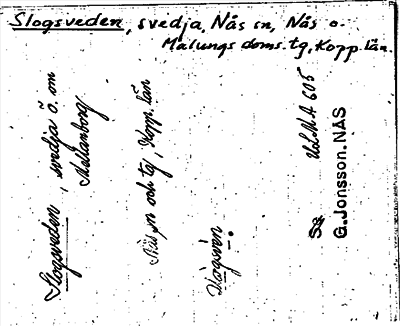 Slogsveden, svedja, Nås sn, Nås o.
Malungs doms. tg, Kopp. län.
Slogsveden, svedja ö. om
Mellanborg
Nås sn och tg, Kopp. län
Se ULMA 605
G. Jonsson. NÅS